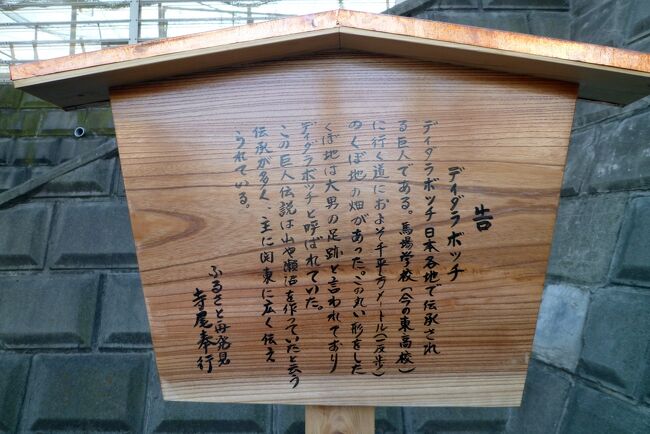 告
デイダラボッチ
デイダラボッチ日本各地で伝承され
る巨人である。馬場学校(今の東高校)
に行く道におよそ千平方メートル(一反歩)
のくぼ地の畑があった。この丸い形をした
くぼ地は大男の足跡と言われており
デイダラボッチと呼ばれていた。
この巨人伝説は山や湖沼を作っていたと云う
伝承が多く、主に関東に広く伝え
られている。
ふるさと再発見
寺尾奉行